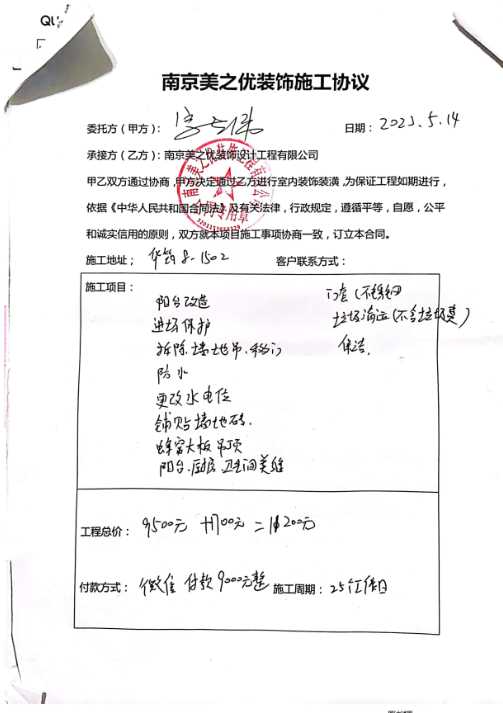 南京美之优装饰施工协议
委托方（甲方）：
日期：2023.5.14
承接方（乙方）：南京美之优装饰设计工程有限公司
甲乙双方通过协商，甲方决定通过乙方进行室内装饰装潢，为保证工程如期进行，
依据《中华人民共和国合同法》及有关法律，行政规定，遵循平等，自愿，公平
和诚实信用的原则，双方就本项目施工事项协商一致，订立本合同。
施工地址： 8-1502 客户联系方式：
施工项目：
阳台改造 门套（不锈钢）
进场保护 垃圾清运（不含垃圾费）
拆除墙地吊.移门 保洁.
防水
更改水电位
铺贴墙地砖.
蜂窝大板吊顶
阳台.厨房.卫生间美缝
工程总价： 9500元 +1700元 = 11200元
付款方式： 微信 付款9000元整 施工周期：25工作日